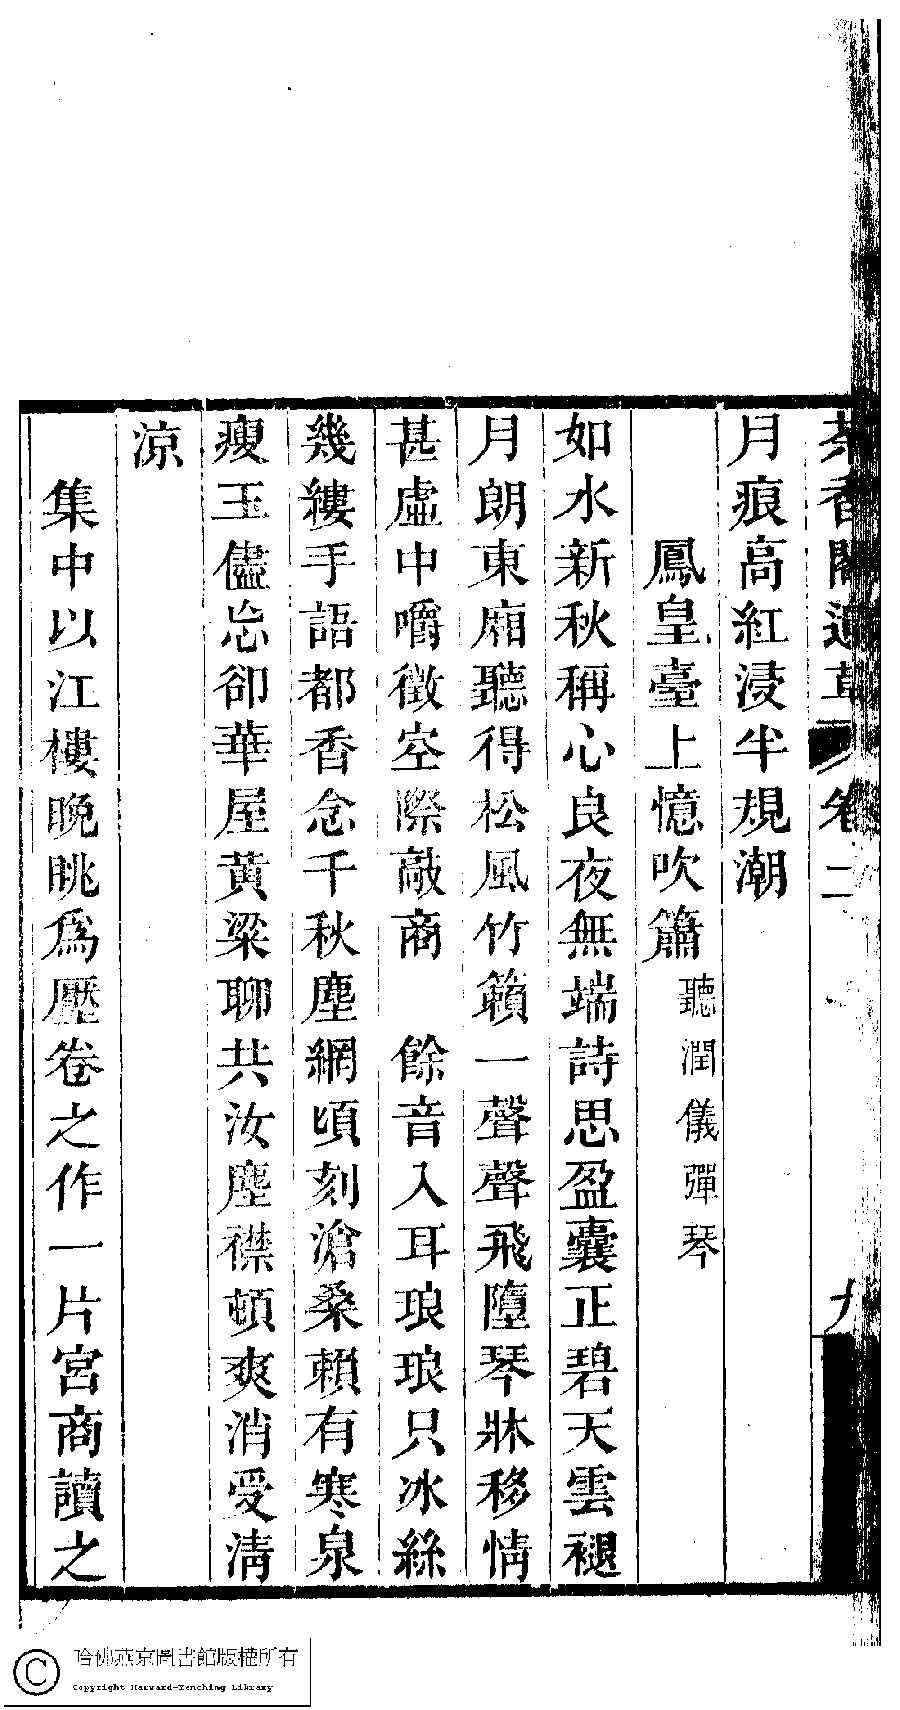 茶香閣遺草 卷二 九
月痕高紅浸半規潮
鳳皇臺上憶吹簫 聽潤儀彈琴
如水新秋稱心良夜無端詩思盈囊正碧天雲褪
月朗東廂聽得松風竹籟一聲聲飛墮琴牀移情
甚虛中嚼徵空際敲商 餘音入耳琅琅只冰絲
幾縷手語都香念千秋塵網頃刻滄桑賴有寒泉
瘦玉儘忘卻華屋黃粱聊共汝塵襟頓爽消受清
涼
集中以江樓晚眺爲壓卷之作一片宮商讀之
哈佛燕京圖書館版權所有
Copyright Harvard-Yenching Library